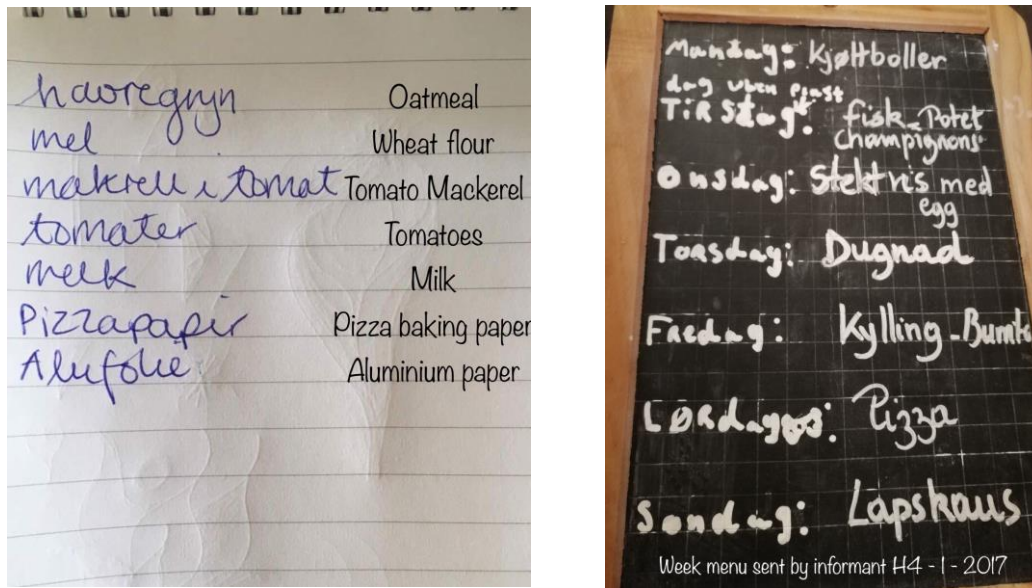 havregryn Oatmeal
mel Wheat flour
makrell i tomat Tomato Mackerel
tomater Tomatoes
melk Milk
Pizzapapir Pizza baking paper
Alufolie Aluminium paper
Mandag: Kjøttboller
dag uten plast
TiRSdag: fisk - Potet
champignons
Onsdag: Stekt ris med
egg
Torsdag: Dugnad
Fredag: Kylling - Bunk
LØRdag: Pizza
Søndag: Lapskaus
Week menu sent by informant H4 - 1 - 2017